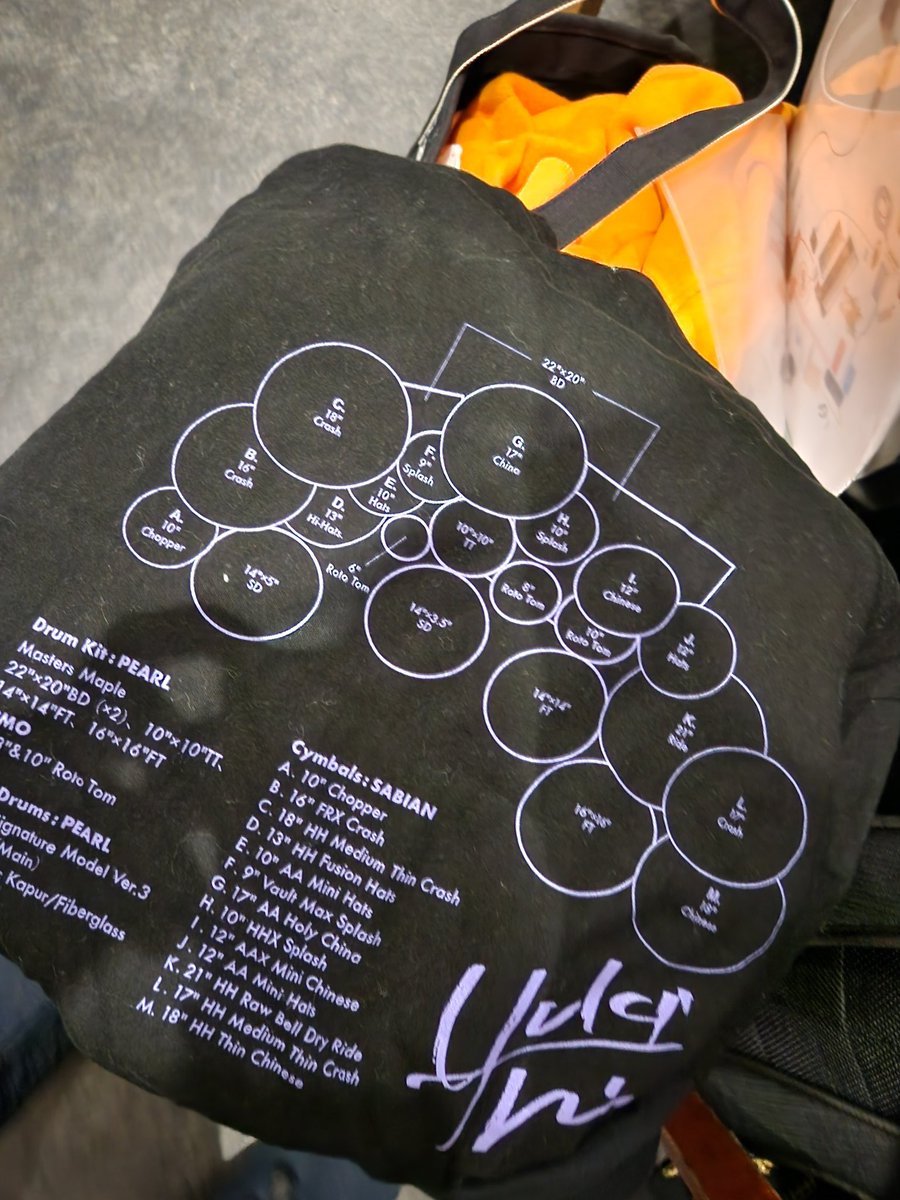 22"×20"
BD
C.
18"
Crash
G.
17"
China
B.
16"
Crash
F.
9"
Splash
E.
10"
Hats
D.
13"
Hi-Hats
A.
10"
Chopper
10"×10"
TT
H.
10"
Splash
6"
Roto Tom
14"×5"
SD
14"×3.5"
SD
8"
Roto Tom
I.
12"
Chinese
10"
Roto Tom
J.
12"
Hats
14"×14"
FT
K.
21"
Ride
16"×16"
FT
17"
Crash
M.
18"
Chinese
Drum Kit : PEARL
Masters Maple
22"×20"BD (×2)、 10"×10"TT、
14"×14"FT、 16"×16"FT
MO
8"&10" Roto Tom
Drums : PEARL
ignature Model Ver.3
(Main)
Kapur/Fiberglass
Cymbals : SABIAN
A. 10" Chopper
B. 16" FRX Crash
C. 18" HH Medium Thin Crash
D. 13" HH Fusion Hats
E. 10" AA Mini Hats
F. 9" Vault Max Splash
G. 17" AA Holy China
H. 10" HHX Splash
I. 12" AAX Mini Chinese
J. 12" AA Mini Hats
K. 21" HH Raw Bell Dry Ride
L. 17" HH Medium Thin Crash
M. 18" HH Thin Chinese